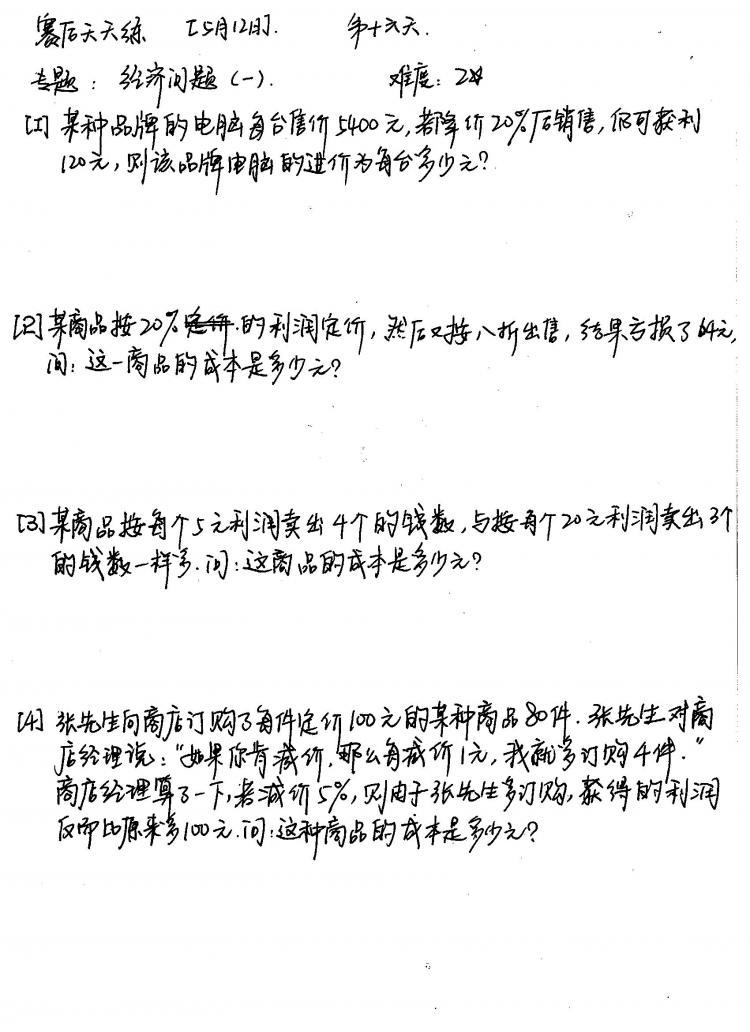 赛后天天练 [5月12日]. 第十六天.
专题: 经济问题(一). 难度: 2☆
[1] 某种品牌的电脑每台售价5400元,若降价20%后销售,仍可获利
120元,则该品牌电脑的进价为每台多少元?
[2] 某商品按20%的利润定价,然后又按八折出售,结果亏损了64元,
问:这一商品的成本是多少元?
[3] 某商品按每个5元利润卖出4个的钱数,与按每个20元利润卖出3个
的钱数一样多.问:这商品的成本是多少元?
[4] 张先生向商店订购了每件定价100元的某种商品80件.张先生对商
店经理说:"如果你肯减价,那么每减价1元,我就多订购4件."
商店经理算了一下,若减价5%,则由于张先生多订购,获得的利润
反而比原来多100元.问:这种商品的成本是多少元?